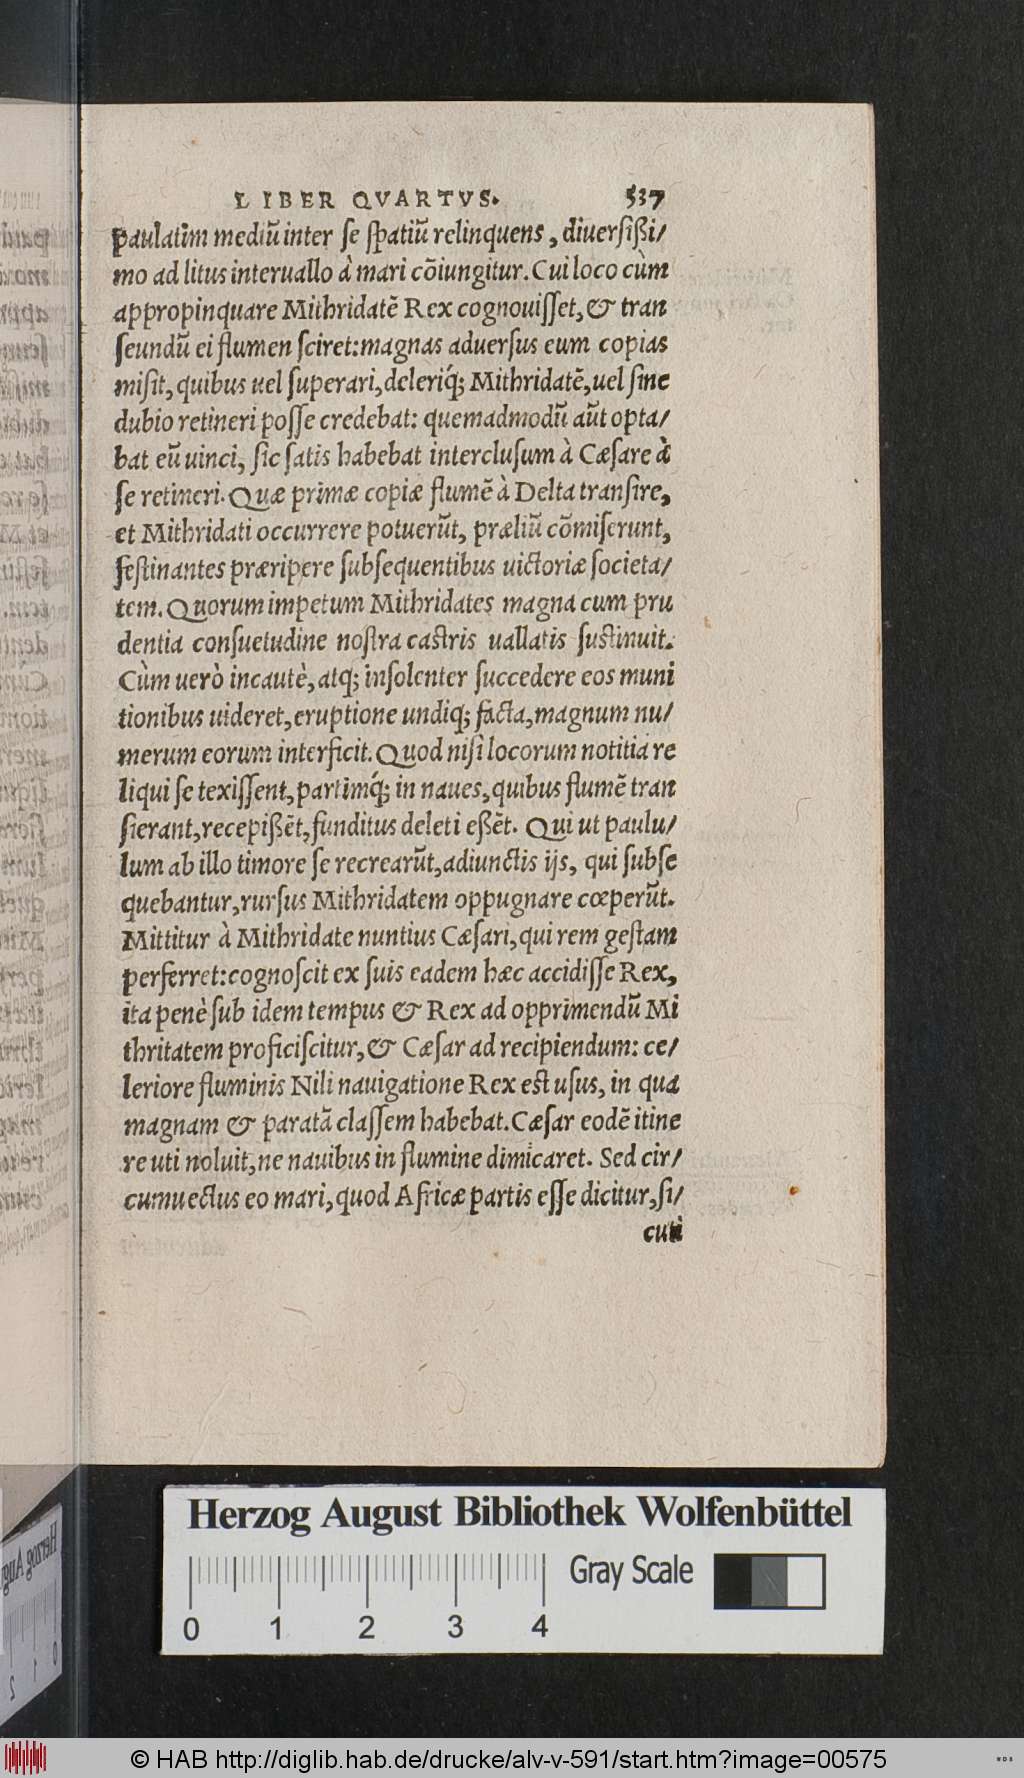 LIBER QVARTVS. 537
paulatim mediũ inter ſe ſpatiũ relinquens, diuerſißi/
mo ad litus interuallo à mari cõiungitur. Cui loco cùm
appropinquare Mithridatẽ Rex cognouiſſet, & tran
ſeundũ ei flumen ſciret: magnas aduerſus eum copias
miſit, quibus uel ſuperari, deleriq́; Mithridatẽ, uel ſine
dubio retineri poſſe credebat: quemadmodũ aũt opta/
bat eũ uinci, ſic ſatis habebat incluſum à Cæſare à
ſe retineri. Quæ primæ copiæ flumẽ à Delta tranſire,
et Mithridati occurrere potuerũt, præliũ cõmiſerunt,
feſtinantes præripere ſubſequentibus uictoriæ ſocieta/
tem. Quorum impetum Mithridates magna cum pru
dentia conſuetudine noſtra caſtris uallatis ſuſtinuit.
Cùm uerò incautè, atq; inſolenter ſuccedere eos muni
tionibus uideret, eruptione undiq; facta, magnum nu/
merum eorum interficit. Quod niſi locorum notitia re
liqui ſe texiſſent, partimq́; in naues, quibus flumẽ tran
ſierant, recepißẽt, funditus deleti eßẽt. Qui ut paulu/
lum ab illo timore ſe recrearũt, adiunctis ijs, qui ſubſe
quebantur, rurſus Mithridatem oppugnare cœperũt.
Mittitur à Mithridate nuntius Cæſari, qui rem geſtam
perferret: cognoſcit ex ſuis eadem hæc accidiſſe Rex,
ita penè ſub idem tempus & Rex ad opprimendũ Mi
thritatem proficiſcitur, & Cæſar ad recipiendum: ce/
leriore fluminis Nili nauigatione Rex eſt uſus, in qua
magnam & paratã claſſem habebat. Cæſar eodẽ itine
re uti noluit, ne nauibus in flumine dimicaret. Sed cir/
cumuectus eo mari, quod Africæ partis eſſe dicitur, ſi/
cuti
Herzog August Bibliothek Wolfenbüttel
Gray Scale
0 1 2 3 4
© HAB http://diglib.hab.de/drucke/alv-v-591/start.htm?image=00575